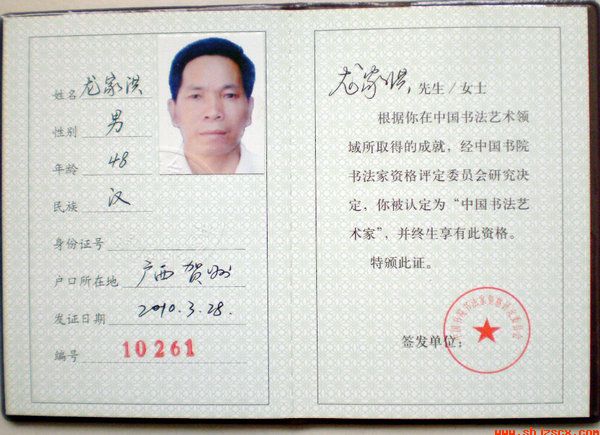 姓名 龙家洪
性别 男
年龄 48
民族 汉
身份证号
户口所在地 广西贺州
发证日期 2010.3.28.
编号 10261
龙家洪 先生/女士
根据你在中国书法艺术领
域所取得的成就，经中国书院
书法家资格评定委员会研究决
定，你被认定为“中国书法艺
术家”，并终生享有此资格。
特颁此证。
签发单位：
中国书院书法家资格评定委员会
www.shjzscx.com